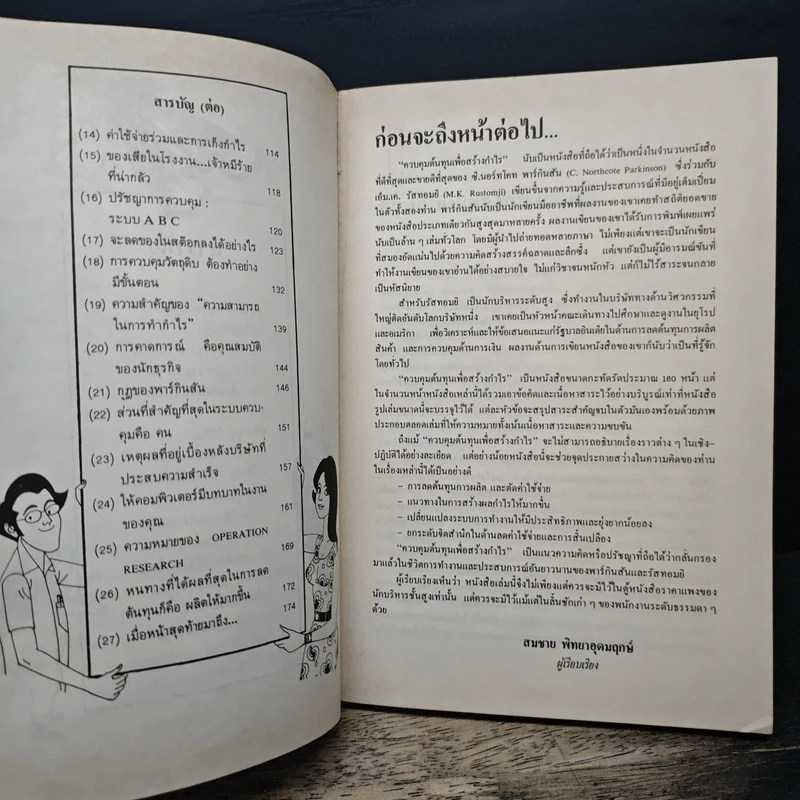 สารบัญ (ต่อ)
(14) ค่าใช้จ่ายร่วมและการเก็งกำไร 114
(15) ของเสียในโรงงาน...เจ้าหมีร้าย
ที่น่ากลัว 118
(16) ปรัชญาการควบคุม :
ระบบ A B C 120
(17) จะลดของในสต๊อกลงได้อย่างไร 123
(18) การควบคุมวัตถุดิบ ต้องทำอย่าง
มีขั้นตอน 132
(19) ความสำคัญของ “ความสามารถ
ในการทำกำไร” 139
(20) การคาดการณ์ คือคุณสมบัติ
ของนักธุรกิจ 144
(21) กฎของพาร์กินสัน 146
(22) ส่วนที่สำคัญที่สุดในระบบควบ-
คุมคือ คน 151
(23) เหตุผลที่อยู่เบื้องหลังบริษัทที่
ประสบความสำเร็จ 157
(24) ให้คอมพิวเตอร์มีบทบาทในงาน
ของคุณ 161
(25) ความหมายของ OPERATION
RESEARCH 169
(26) หนทางที่ได้ผลที่สุดในการลด
ต้นทุนก็คือ ผลิตให้มากขึ้น 172
(27) เมื่อหน้าสุดท้ายมาถึง... 174
ก่อนจะถึงหน้าต่อไป...
“ควบคุมต้นทุนเพื่อสร้างกำไร” นับเป็นหนังสือที่ถือได้ว่าเป็นหนึ่งในจำนวนหนังสือ
ที่ดีที่สุดและขายดีที่สุดของ ซี.นอร์ทโคท พาร์กินสัน (C. Northcote Parkinson) ซึ่งร่วมกับ
เอ็ม.เค. รัสทอมยิ (M.K. Rustomji) เขียนขึ้นจากความรู้และประสบการณ์ที่มีอยู่เต็มเปี่ยม
ในตัวทั้งสองท่าน พาร์กินสันนับเป็นนักเขียนมืออาชีพที่ผลงานของเขาเคยทำสถิติยอดขาย
ของหนังสือประเภทเดียวกันสูงสุดมาหลายครั้ง ผลงานเขียนของเขาได้รับการพิมพ์เผยแพร่
นับเป็นล้าน ๆ เล่มทั่วโลก โดยมีผู้นำไปถ่ายทอดหลายภาษา ไม่เพียงแต่เขาจะเป็นนักเขียน
ที่สมองอัดแน่นไปด้วยความคิดสร้างสรรค์ฉลาดและลึกซึ้ง แต่เขายังเป็นผู้มีอารมณ์ขันที่
ทำให้งานเขียนของเขาอ่านได้อย่างสบายใจ ไม่แก่วิชาจนหนักหัว แต่ก็ไม่ไร้สาระจนกลาย
เป็นหัสนิยาย
สำหรับรัสทอมยิ เป็นนักบริหารระดับสูง ซึ่งทำงานในบริษัททางด้านวิศวกรรมที่
ใหญ่ติดอันดับโลกบริษัทหนึ่ง เขาเคยเป็นหัวหน้าคณะเดินทางไปศึกษาและดูงานในยุโรป
และอเมริกา เพื่อวิเคราะห์และให้ข้อเสนอแนะแก่รัฐบาลอินเดียในด้านการลดต้นทุนการผลิต
สินค้า และการควบคุมด้านการเงิน ผลงานด้านการเขียนหนังสือของเขาก็นับว่าเป็นที่รู้จัก
โดยทั่วไป
“ควบคุมต้นทุนเพื่อสร้างกำไร” เป็นหนังสือขนาดกะทัดรัดประมาณ 160 หน้า แต่
ในจำนวนหน้าหนังสือเหล่านี้ได้รวมเอาข้อคิดและเนื้อหาสาระไว้อย่างบริบูรณ์เท่าที่หนังสือ
รูปเล่มขนาดนี้จะบรรจุไว้ได้ แต่ละหัวข้อจะสรุปสาระสำคัญจบในตัวมันเองพร้อมด้วยภาพ
ประกอบตลอดเล่มที่ให้ความหมายทั้งเน้นเนื้อหาสาระและความขบขัน
ถึงแม้ “ควบคุมต้นทุนเพื่อสร้างกำไร” จะไม่สามารถอธิบายเรื่องราวต่าง ๆ ในเชิง-
ปฏิบัติได้อย่างละเอียด แต่อย่างน้อยหนังสือนี้จะช่วยจุดประกายสว่างในความคิดของท่าน
ในเรื่องเหล่านี้ได้เป็นอย่างดี
– การลดต้นทุนการผลิต และตัดค่าใช้จ่าย
– แนวทางในการสร้างผลกำไรให้มากขึ้น
– เปลี่ยนแปลงระบบการทำงานให้มีประสิทธิภาพและยุ่งยากน้อยลง
– ยกระดับจิตสำนึกในด้านลดค่าใช้จ่ายและการสิ้นเปลือง
“ควบคุมต้นทุนเพื่อสร้างกำไร” เป็นแนวความคิดหรือปรัชญาที่ถือได้ว่ากลั่นกรอง
มาแล้วในชีวิตการทำงานและประสบการณ์อันยาวนานของพาร์กินสันและรัสทอมยิ
ผู้เรียบเรียงเห็นว่า หนังสือเล่มนี้จึงไม่เพียงแต่ควรจะมีไว้ในตู้หนังสือราคาแพงของ
นักบริหารชั้นสูงเท่านั้น แต่ควรจะมีไว้แม้แต่ในลิ้นชักเก่า ๆ ของพนักงานระดับธรรมดา ๆ
ด้วย
สมชาย พิทยาอุดมฤกษ์
ผู้เรียบเรียง